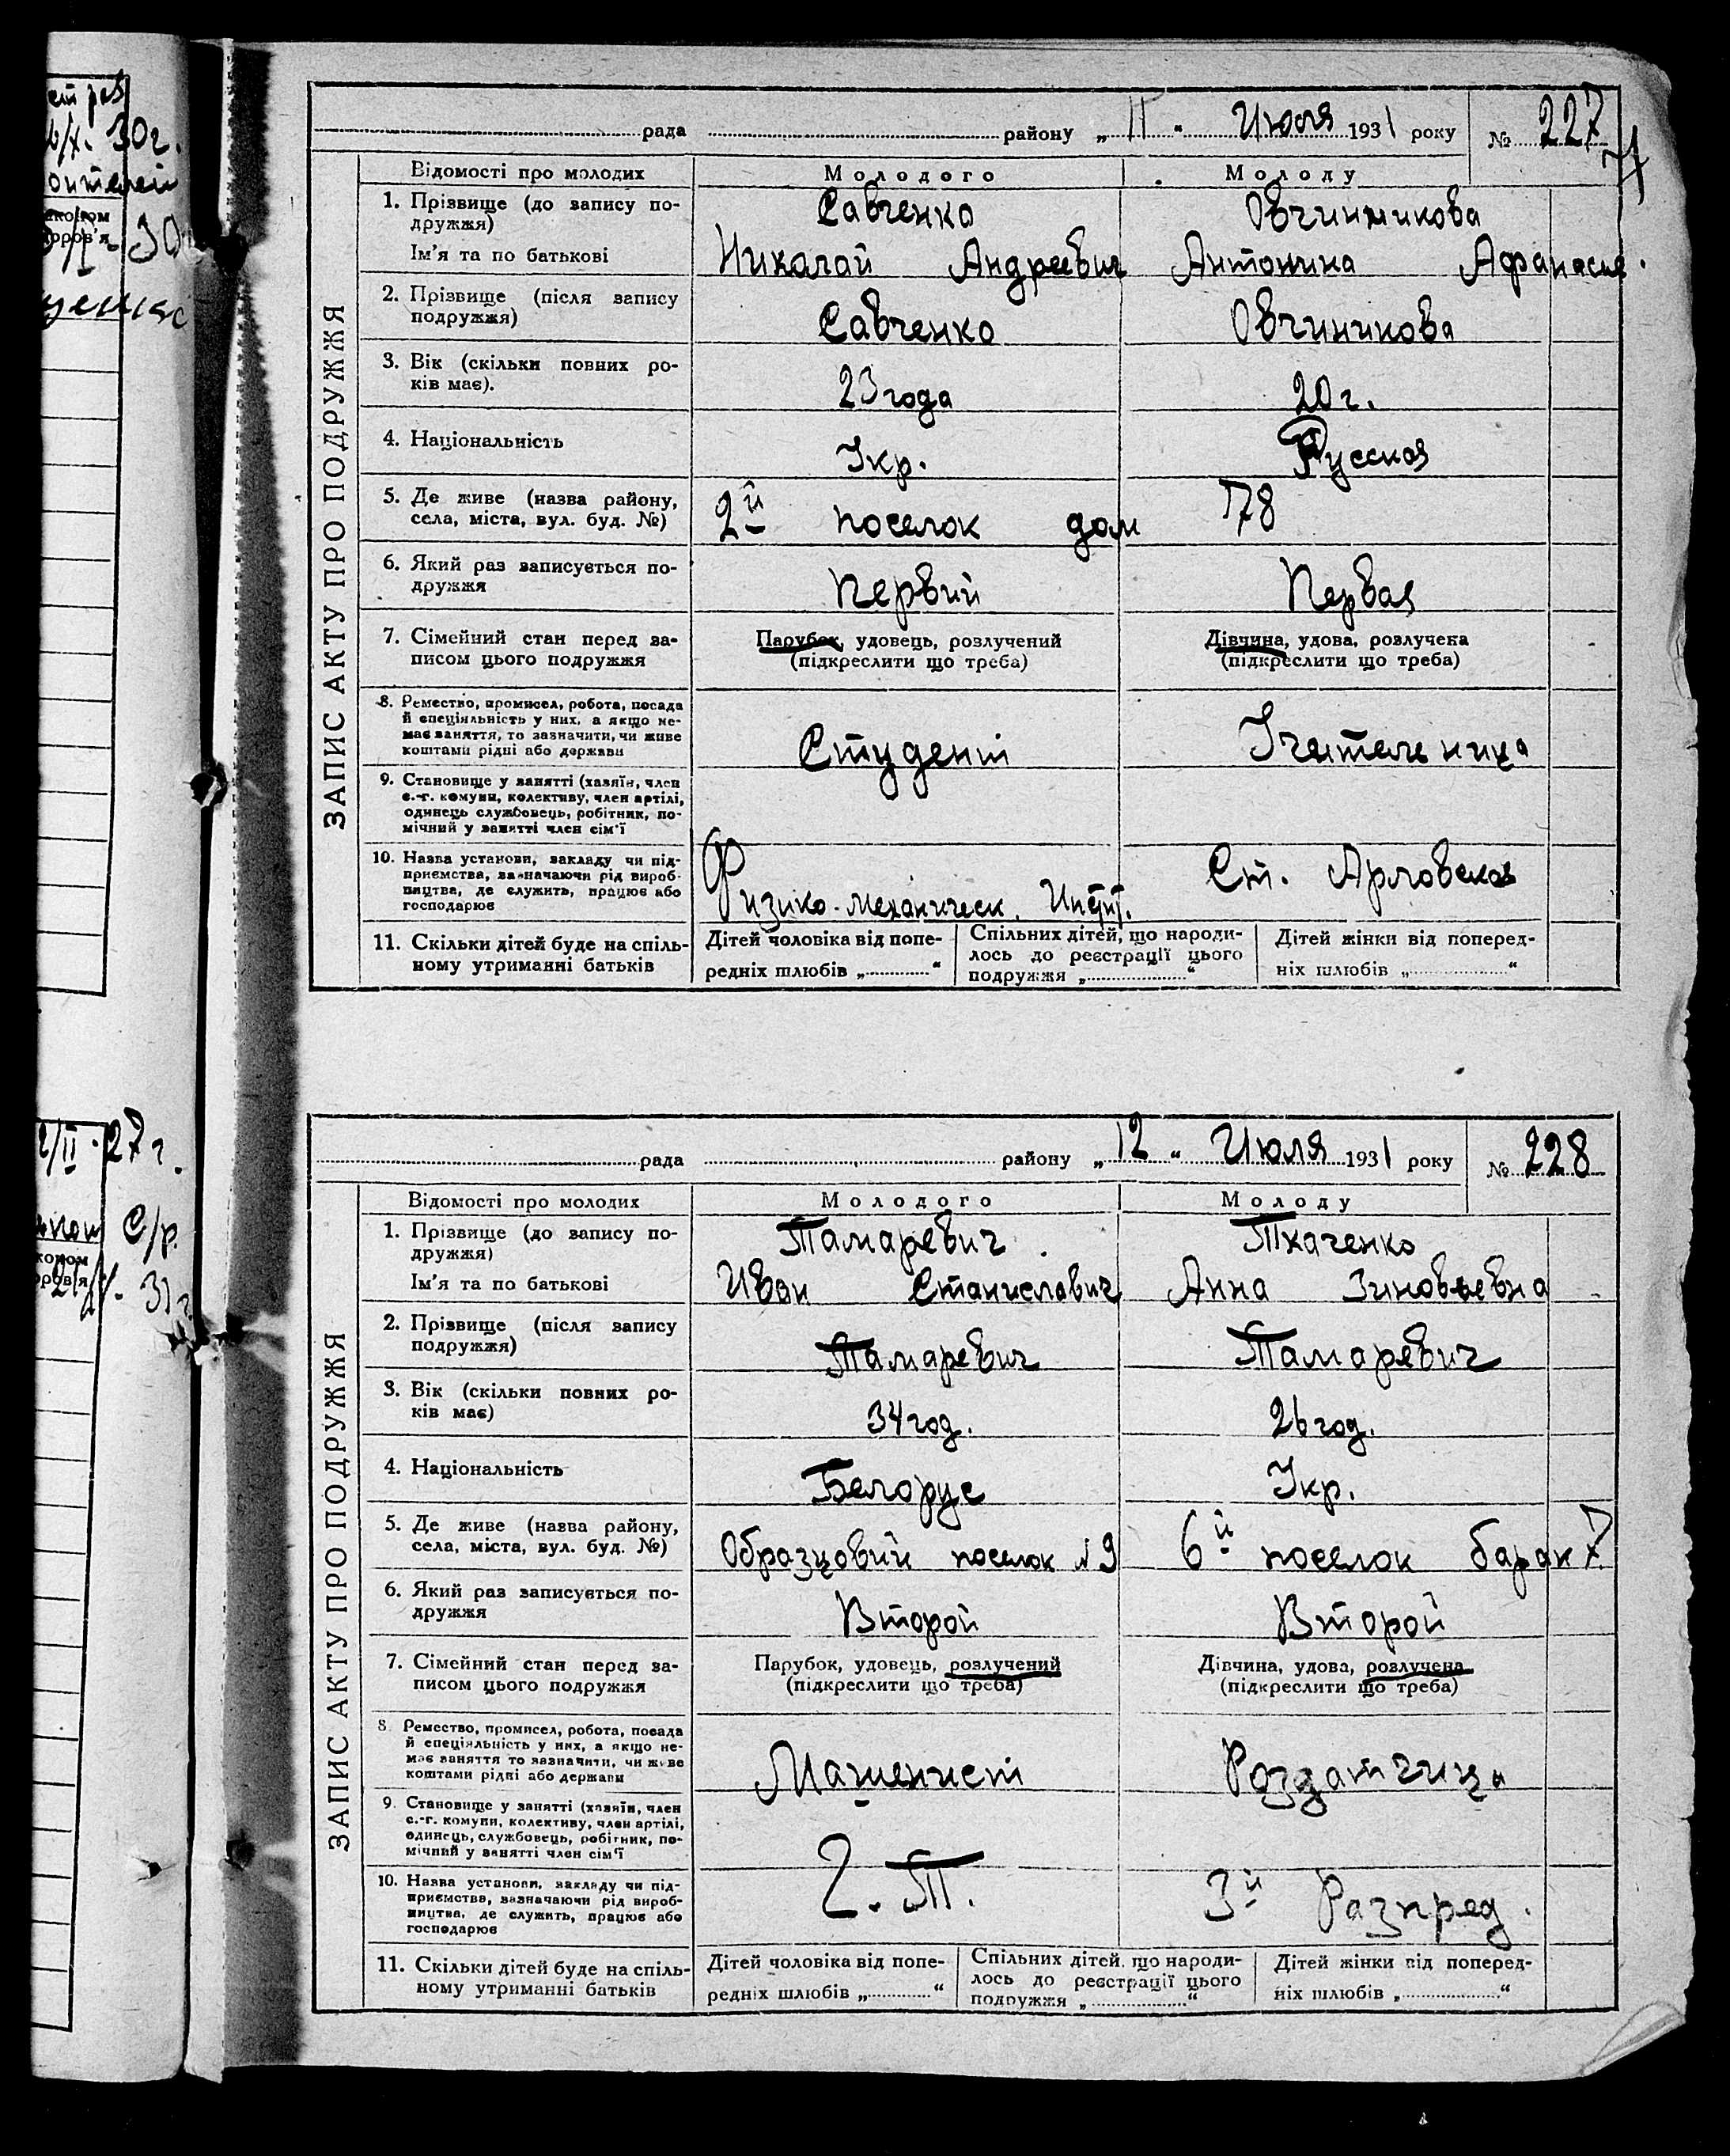 рада района „ 11 “ Июля 1931 року № 227
Відомості про молодих Молодого Молоду
1. Прізвище (до запису по-
дружжя)
Савченко Овчинникова
Ім'я та по батькові Николай Андреевич Антонина Афанасьев.
2. Прізвище (після запису
подружжя)
Савченко Овчиникова
3. Вік (скільки повних ро-
ків має).
23 года 20 г.
4. Національність Укр. Русская
5. Де живе (назва району,
села, міста, вул. буд. №)
2й поселок дом 178
6. Який раз записується по-
дружжя
Первий Первая
7. Сімейний стан перед за-
писом цього подружжя
Парубок, удовець, розлучений
(підкреслити що треба)
Дівчина, удова, розлучена
(підкреслити що треба)
8. Ремество, промисел, робота, посада
й спеціяльність у них, а якщо не-
має заняття, то зазначити, чи живе
коштами рідні або держави
Студент Учительница
9. Становище у занятті (хазяїн, член
с.-г. комуни, колективу, член артілі,
одинець службовець, робітник, по-
мічний у занятті член сім'ї
10. Назва установи, закладу чи під-
приємства, зазначаючи рід вироб-
ництва, де служить, працює або
господарює
Физико-механическ. Инстит.
Ст. Арловская
11. Скільки дітей буде на спіль-
ному утриманні батьків
Дітей чоловіка від попе-
редніх шлюбів „ “
Спільних дітей, що народи-
лось до реєстрації цього
подружжя „ “
Дітей жінки від поперед-
ніх шлюбів „ “
ЗАПИС АКТУ ПРО ПОДРУЖЖЯ
рада району „ 12 “ Июля 1931 року № 228
Відомості про молодих Молодого Молоду
1. Прізвище (до запису по-
дружжя)
Тамаревич Ткаченко
Ім'я та по батькові Иван Станиславич Анна Зиновьевна
2. Прізвище (після запису
подружжя)
Тамаревич Тамаревич
3. Вік (скільки повних ро-
ків має)
34 год. 26 год.
4. Національність Белорус Укр.
5. Де живе (назва району,
села, міста, вул. буд. №)
Образцовий поселок №9 6й поселок барак 7
6. Який раз записується по-
дружжя
Второй Второй
7. Сімейний стан перед за-
писом цього подружжя
Парубок, удовець, розлучений
(підкреслити що треба)
Дівчина, удова, розлучена
(підкреслити що треба)
8. Ремество, промисел, робота, посада
й спеціяльність у них, а якщо не-
має заняття то зазначити, чи живе
коштами рідні або держави
Машенист Роздатчица
9. Становище у занятті (хазяїн, член
с.-г. комуни, колективу, член артілі,
одинець, службовець, робітник, по-
мічний у занятті член сім'ї
10. Назва установи, закладу чи під-
приємства, зазначаючи рід вироб-
ництва, де служить, працює або
господарює
Ч. Т. 3й Разпред.
11. Скільки дітей буде на спіль-
ному утриманні батьків
Дітей чоловіка від попе-
редніх шлюбів „ “
Спільних дітей, що народи-
лось до реєстрації цього
подружжя „ “
Дітей жінки від поперед-
ніх шлюбів „ “
ЗАПИС АКТУ ПРО ПОДРУЖЖЯ